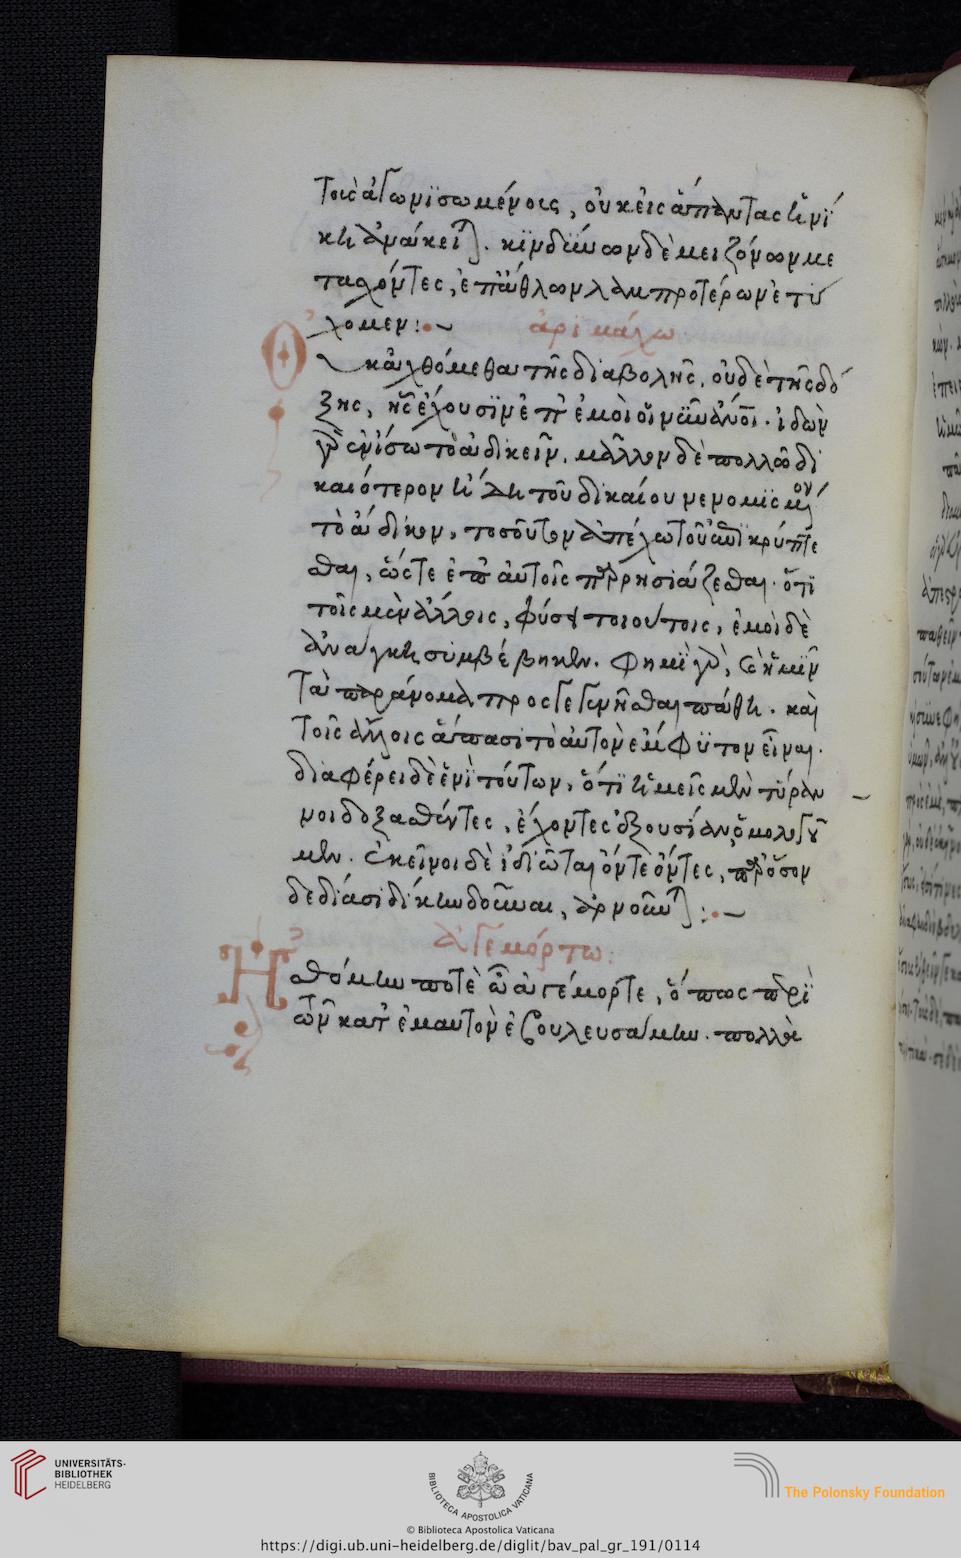 τοις ἀγωνϊσωμένοις, οὐκ εἰς ἅπαντας ἡ νί
κη ἀνάκειται. κϊνδύνων δὲ μειζόνων με
τασχόντες, ἐπάθλων λαμπροτέρων ἐτύ
χομεν:
ἀρϊμάχω
Οὐκ ἀχθόμεθα τῆς διαβολῆς, οὐδὲ τῆς δό
ξης, ἧς ἔχουσϊν ἐπ' ἐμοὶ
γὰρ ἐν ἴσω τὸ ἀδικεῖν, μᾶλλον δὲ πολλῶ δι
καιότερον τοῦ δικαίου νενομϊσμένου
τὸ ἄδικον, τοσοῦτον ἀπέχω τοῦ ἀντϊκρύπτε
σθαι, ὥστε ἐπ' αὐτοῖς παρρησιάζεσθαι. ὅτϊ
τοῖς μὲν ἄλλοις, φύσει τοιούτοις, ἐμοὶ δὲ
ἀνάγκη συμβέβηκεν. φημὶ γὰρ, ἡμῖν
τὰ παράνομα προσγεγενῆσθαι πάθη. καὶ
τοῖς ἄλλοις ἅπασι τὸ αὐτὸν ἔμφϋτον εἶναι.
διαφέρει δὲ ἑνὶ τούτων, ὅτϊ ἡμεῖς μὲν τύραν
νοι δοξασθέντες, ἔχοντες ἐξουσίαν, ὁμολογοῦ
μεν. ἐκεῖνοι δὲ ἰδιῶται ὄντες,
δεδίασι δίκην δοῦναι, ἀρνοῦνται:
ἀγεμόρτω:
Ἠσθόμην ποτὲ ὦ ἀγέμορτε, ὅπως περὶ
ὧν κατ' ἐμαυτὸν ἐβουλευσάμην. πολλὰ
UNIVERSITÄTS-
BIBLIOTHEK
HEIDELBERG
BIBLIOTECA APOSTOLICA VATICANA
The Polonsky Foundation
© Biblioteca Apostolica Vaticana
https://digi.ub.uni-heidelberg.de/diglit/bav_pal_gr_191/0114